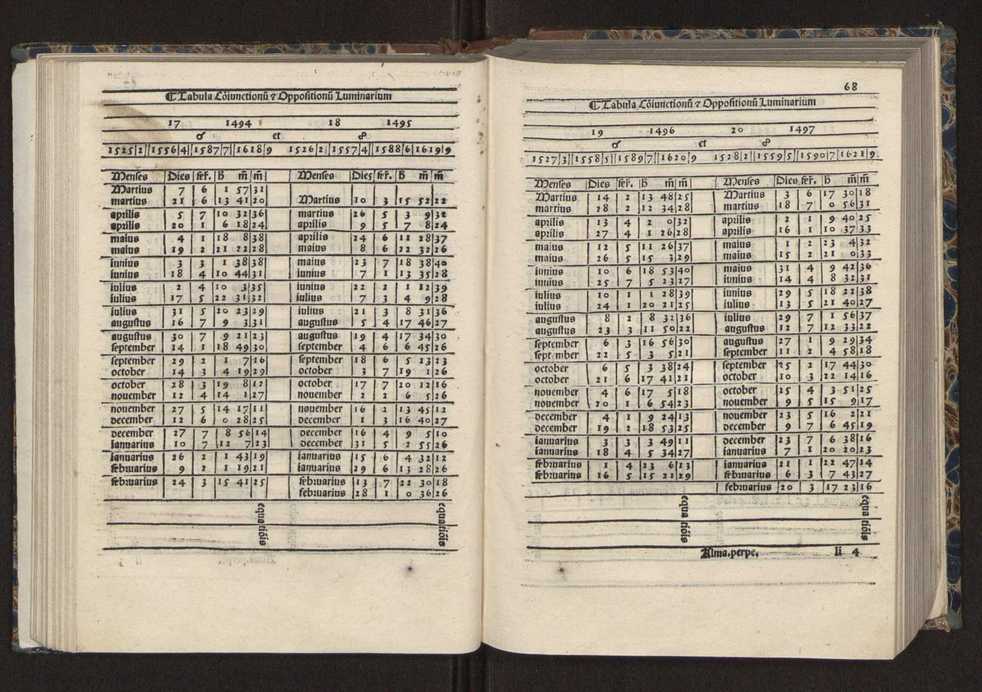 ¶ Tabula Cōiunctionū ⁊ Oppositionū Luminarium
17 1494 18 1495
☌ et ☍
1525|2||1556|4||1587|7||1618|9 1526|2||1557|4||1588|6||1619|9
Menses |Dies|fer.|h|m̄|m̄| Menses |Dies|fer.|h|m̄|m̄
Martius 7 6 1 57 31
martius 21 6 13 41 20 Martius 10 3 15 52 22
aprilis 5 7 10 32 36 martius 26 5 3 9 32
aprilis 20 1 6 18 24 aprilis 9 5 7 8 24
maius 4 1 18 8 38 aprilis 24 6 11 28 37
maius 19 2 21 22 28 maius 8 6 22 32 26
iunius 3 3 1 38 38 maius 23 7 18 38 40
iunius 18 4 10 44 31 iunius 7 1 13 35 28
iulius 2 4 10 3 35 iunius 22 2 1 12 39
iulius 17 5 22 31 32 iulius 7 3 4 9 28
iulius 31 5 20 23 29 iulius 21 3 8 31 36
augustus 16 7 9 3 31 augustus 5 4 17 46 27
augustus 30 7 9 21 23 augustus 19 4 17 34 30
september 14 1 18 49 30 september 4 6 6 45 26
september 29 2 1 7 16 september 18 6 5 23 23
october 14 3 4 19 29 october 3 7 19 1 26
october 28 3 19 8 12 october 17 7 20 12 16
nouember 12 4 14 1 27 nouember 2 2 6 5 26
nouember 27 5 14 17 11 nouember 16 2 13 45 12
december 12 6 0 28 25 december 1 3 16 40 27
december 27 7 8 56 14 december 16 4 9 5 10
ianuarius 10 7 12 7 23 december 31 5 2 55 26
ianuarius 26 2 1 43 19 ianuarius 15 6 4 32 12
februarius 9 2 1 19 21 ianuarius 29 6 13 28 26
februarius 24 3 15 41 25 februarius 13 7 22 30 18
februarius 28 1 0 36 26
equatiōis equatiōis
68
¶ Tabula Cōiunctionū ⁊ Oppositionū Luminarium
19 1496 20 1497
☌ et ☍
1527|3||1558|5||1589|7||1620|9 1528|2||1559|5||1590|7||1621|9
Menses |Dies|fer.|h|m̄|m̄| Menses |Dies|fer.|h|m̄|m̄
Martius 14 2 13 48 25 Martius 3 6 17 30 18
martius 28 2 12 34 28 martius 18 7 0 56 31
aprilis 13 4 2 0 32 aprilis 2 1 9 40 25
aprilis 27 4 1 26 28 aprilis 16 1 10 37 33
maius 12 5 11 26 37 maius 1 2 23 4 32
maius 26 5 15 3 29 maius 15 2 21 0 33
iunius 10 6 18 53 40 maius 31 4 9 42 36
iunius 25 7 5 23 27 iunius 14 4 8 32 31
iulius 10 1 1 28 39 iunius 29 5 18 22 38
iulius 24 1 20 21 25 iulius 13 5 21 40 27
augustus 8 2 8 32 36 iulius 29 7 1 56 37
augustus 23 3 11 50 22 augustus 12 7 12 33 22
september 6 3 16 56 30 augustus 27 1 9 29 34
september 22 5 3 5 21 september 11 2 4 58 18
october 6 5 3 38 24 september 25 2 17 44 30
october 21 6 17 41 21 october 10 3 22 14 16
nouember 4 6 17 5 18 october 25 4 3 51 25
nouember 20 1 6 54 23 nouember 9 5 15 9 17
december 4 1 9 24 13 nouember 23 5 16 2 21
december 19 2 18 53 25 december 9 7 6 45 19
ianuarius 3 3 3 49 11 december 23 7 6 38 16
ianuarius 18 4 5 34 27 ianuarius 7 1 20 20 23
februarius 1 4 23 6 13 ianuarius 21 1 22 47 14
februarius 16 5 15 21 29 februarius 6 3 7 43 27
februarius 20 3 17 23 16
equatiōis equatiōis
Alma.perpe. li 4